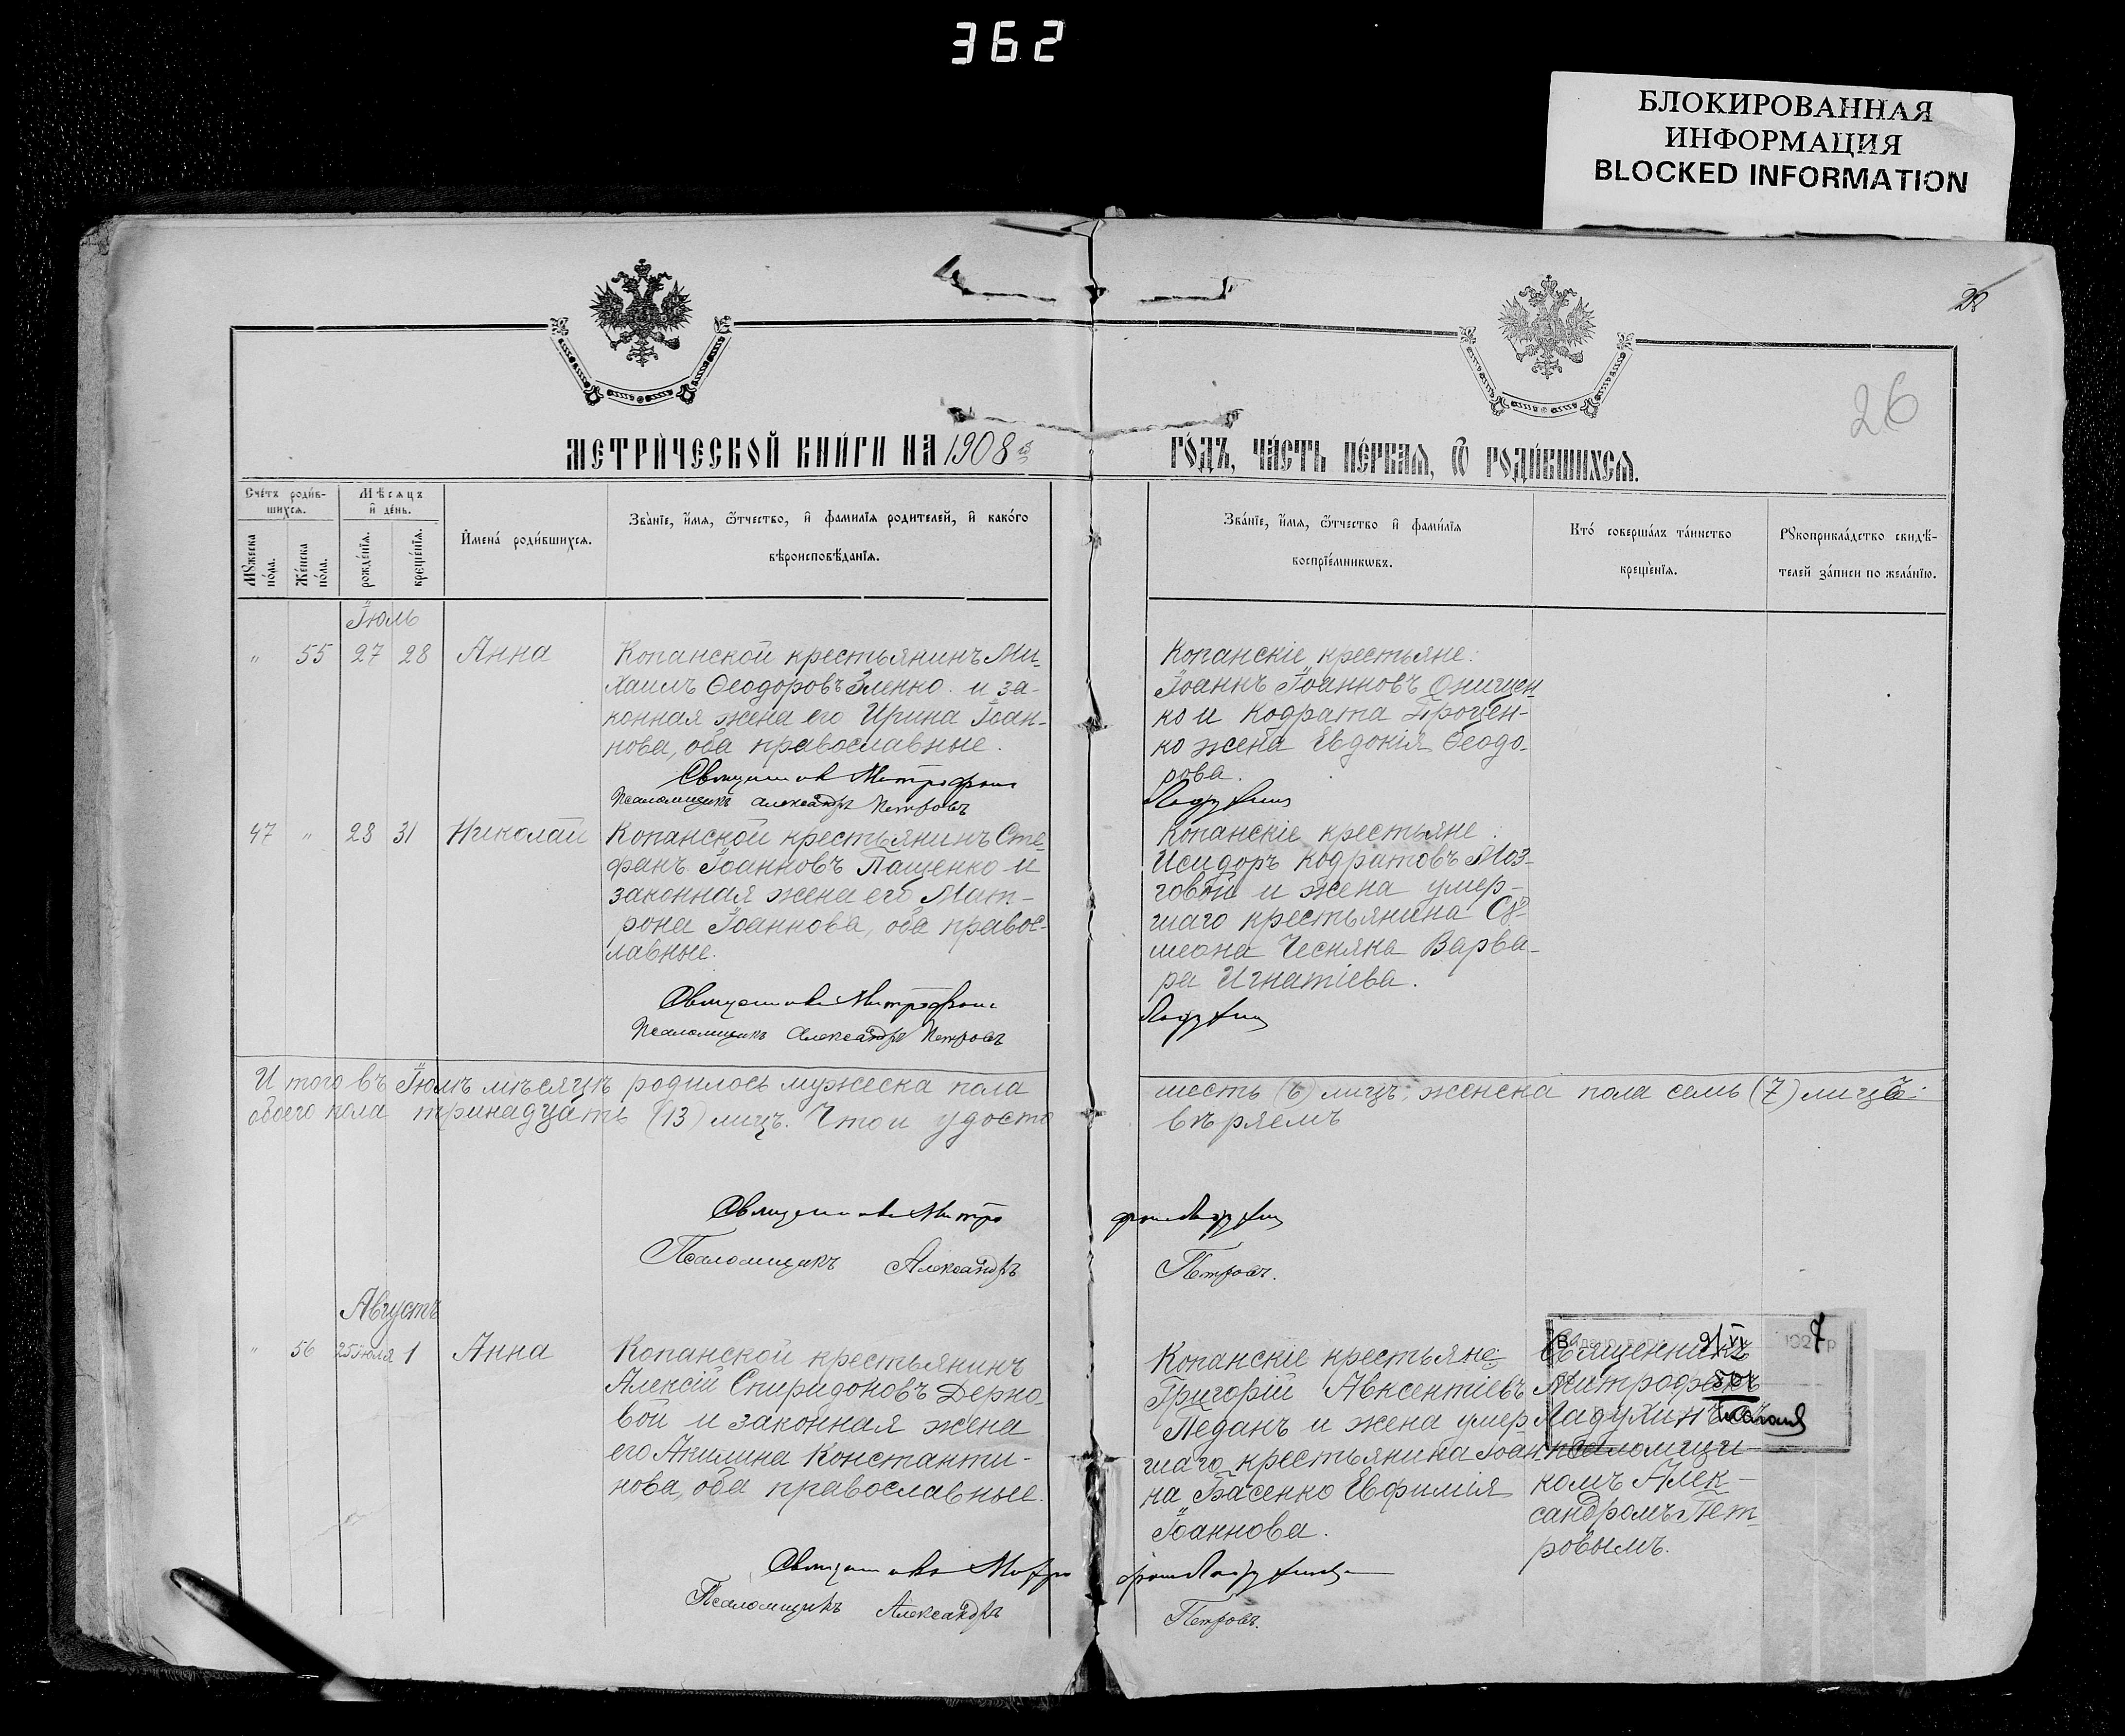 362
БЛОКИРОВАННАЯ
ИНФОРМАЦИЯ
BLOCKED INFORMATION
26
МЕТРИЧЕСКОЙ КНИГИ НА 1908 й
ГОДЪ, ЧАСТЬ ПЕРВАЯ, Ѿ РОДИВШИХСЯ.
Счетъ родив-
шихся.
Мѣсяцъ
и день.
Мужеска
пола.
Женска
пола.
рожденія.
крещенія.
Имена родившихся.
Званіе, имя, ѿтчество, и фамилія родителей, и какого
вѣроисповѣданія.
Званіе, имя, ѿтчество и фамилія
воспріемниковъ.
Кто совершалъ таинство
крещенія.
Рукоприкладство свидѣ-
телей записи по желанію.
Іюль
" 55 27 28 Анна
Копанской крестьянинъ Ми-
хаилъ Ѳеодоровъ Зленко и за-
конная жена его Ирина Іоан-
нова, оба православные.
Священникъ Митрофанъ
Псаломщикъ Александръ Петровъ
Копанскіе крестьяне:
Іоаннъ Іоанновъ Онищен-
ко и Кодрата Процен-
ко жена Евдокія Ѳеодо-
рова.
Ладухинъ
47 " 28 31 Николай
Копанской крестьянинъ Сте-
фанъ Іоанновъ Пащенко и
законная жена его Мат-
рона Іоаннова, оба правос-
лавные.
Священникъ Митрофанъ
Псаломщикъ Александръ Петровъ
Копанскіе крестьяне:
Исидоръ Кодратовъ Моз-
говой и жена умер-
шаго крестьянина Сѵ-
меона Чесняка Варва-
ра Игнатіева.
Ладухинъ
Итого въ Іюлѣ мѣсяцѣ родилось мужеска пола шесть (6) лицъ; женска пола семь (7) лицъ:
обоего пола тринадцать (13) лицъ. Что и удосто вѣряемъ
Священникъ Митро фанъ Ладухинъ
Псаломщикъ Александръ Петровъ.
Августъ
" 56 25 іюля 1 Анна
Копанской крестьянинъ
Алексій Спиридоновъ Дерно-
вой и законная жена
его Акилина Константи-
нова, оба православные.
Священникъ Митро
Псаломщикъ Александръ
Копанскіе крестьяне:
Григорій Авксентіевъ
Педанъ и жена умер-
шаго крестьянина Іоан-
на Басенко Евфимія
Іоаннова.
фанъ Ладухинъ
Петровъ.
Священникъ
Митрофанъ
Ладухинъ
псаломщи-
комъ Алек-
сандромъ Пет-
ровымъ.
9/VI 1927 р